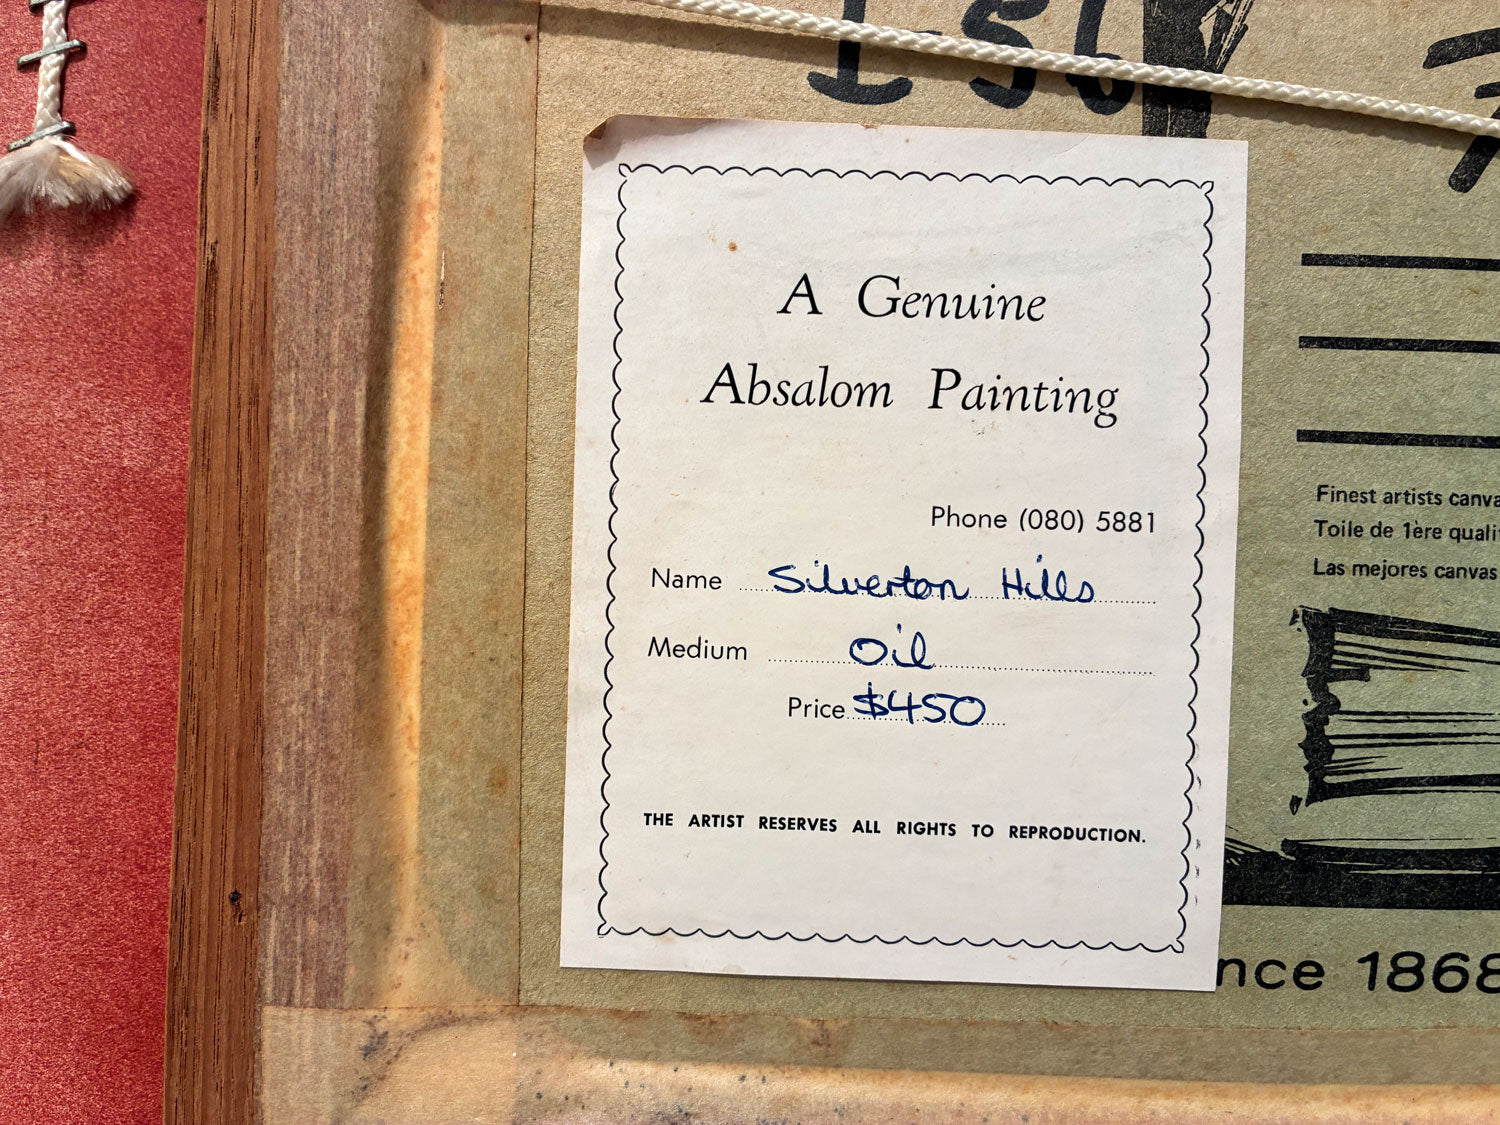 1-56
A Genuine
Absalom Painting
Phone (080) 5881
Name Silverton Hills
Medium Oil
Price $450
THE ARTIST RESERVES ALL RIGHTS TO REPRODUCTION.
Finest artists
Toile de 1ère
Las mejores canvas
1868